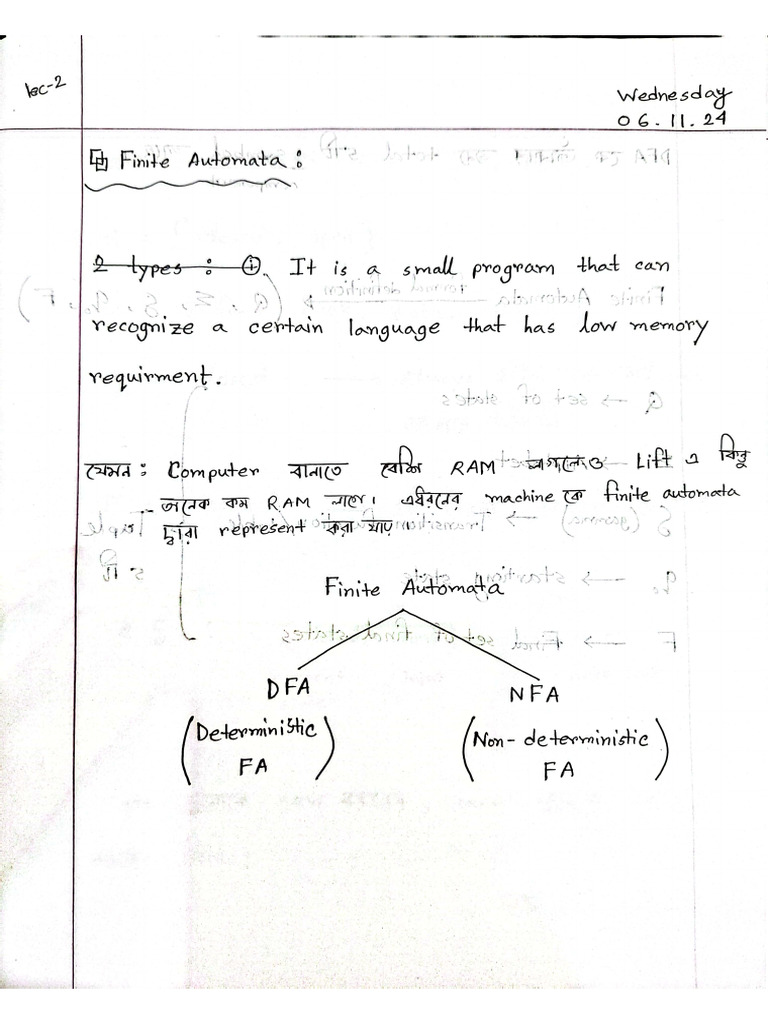 lec-2
Wednesday
06.11.24
Finite Automata :
2 types : It is a small program that can
recognize a certain language that has low memory
requirment.
যেমন : Computer বানাতে বেশি RAM লাগলেও Lift এ কিন্তু
অনেক কম RAM লাগে। এধরনের machine কে finite automata
দ্বারা represent করা যায় ।
Finite Automata
DFA NFA
(Deterministic (Non-deterministic
FA) FA)